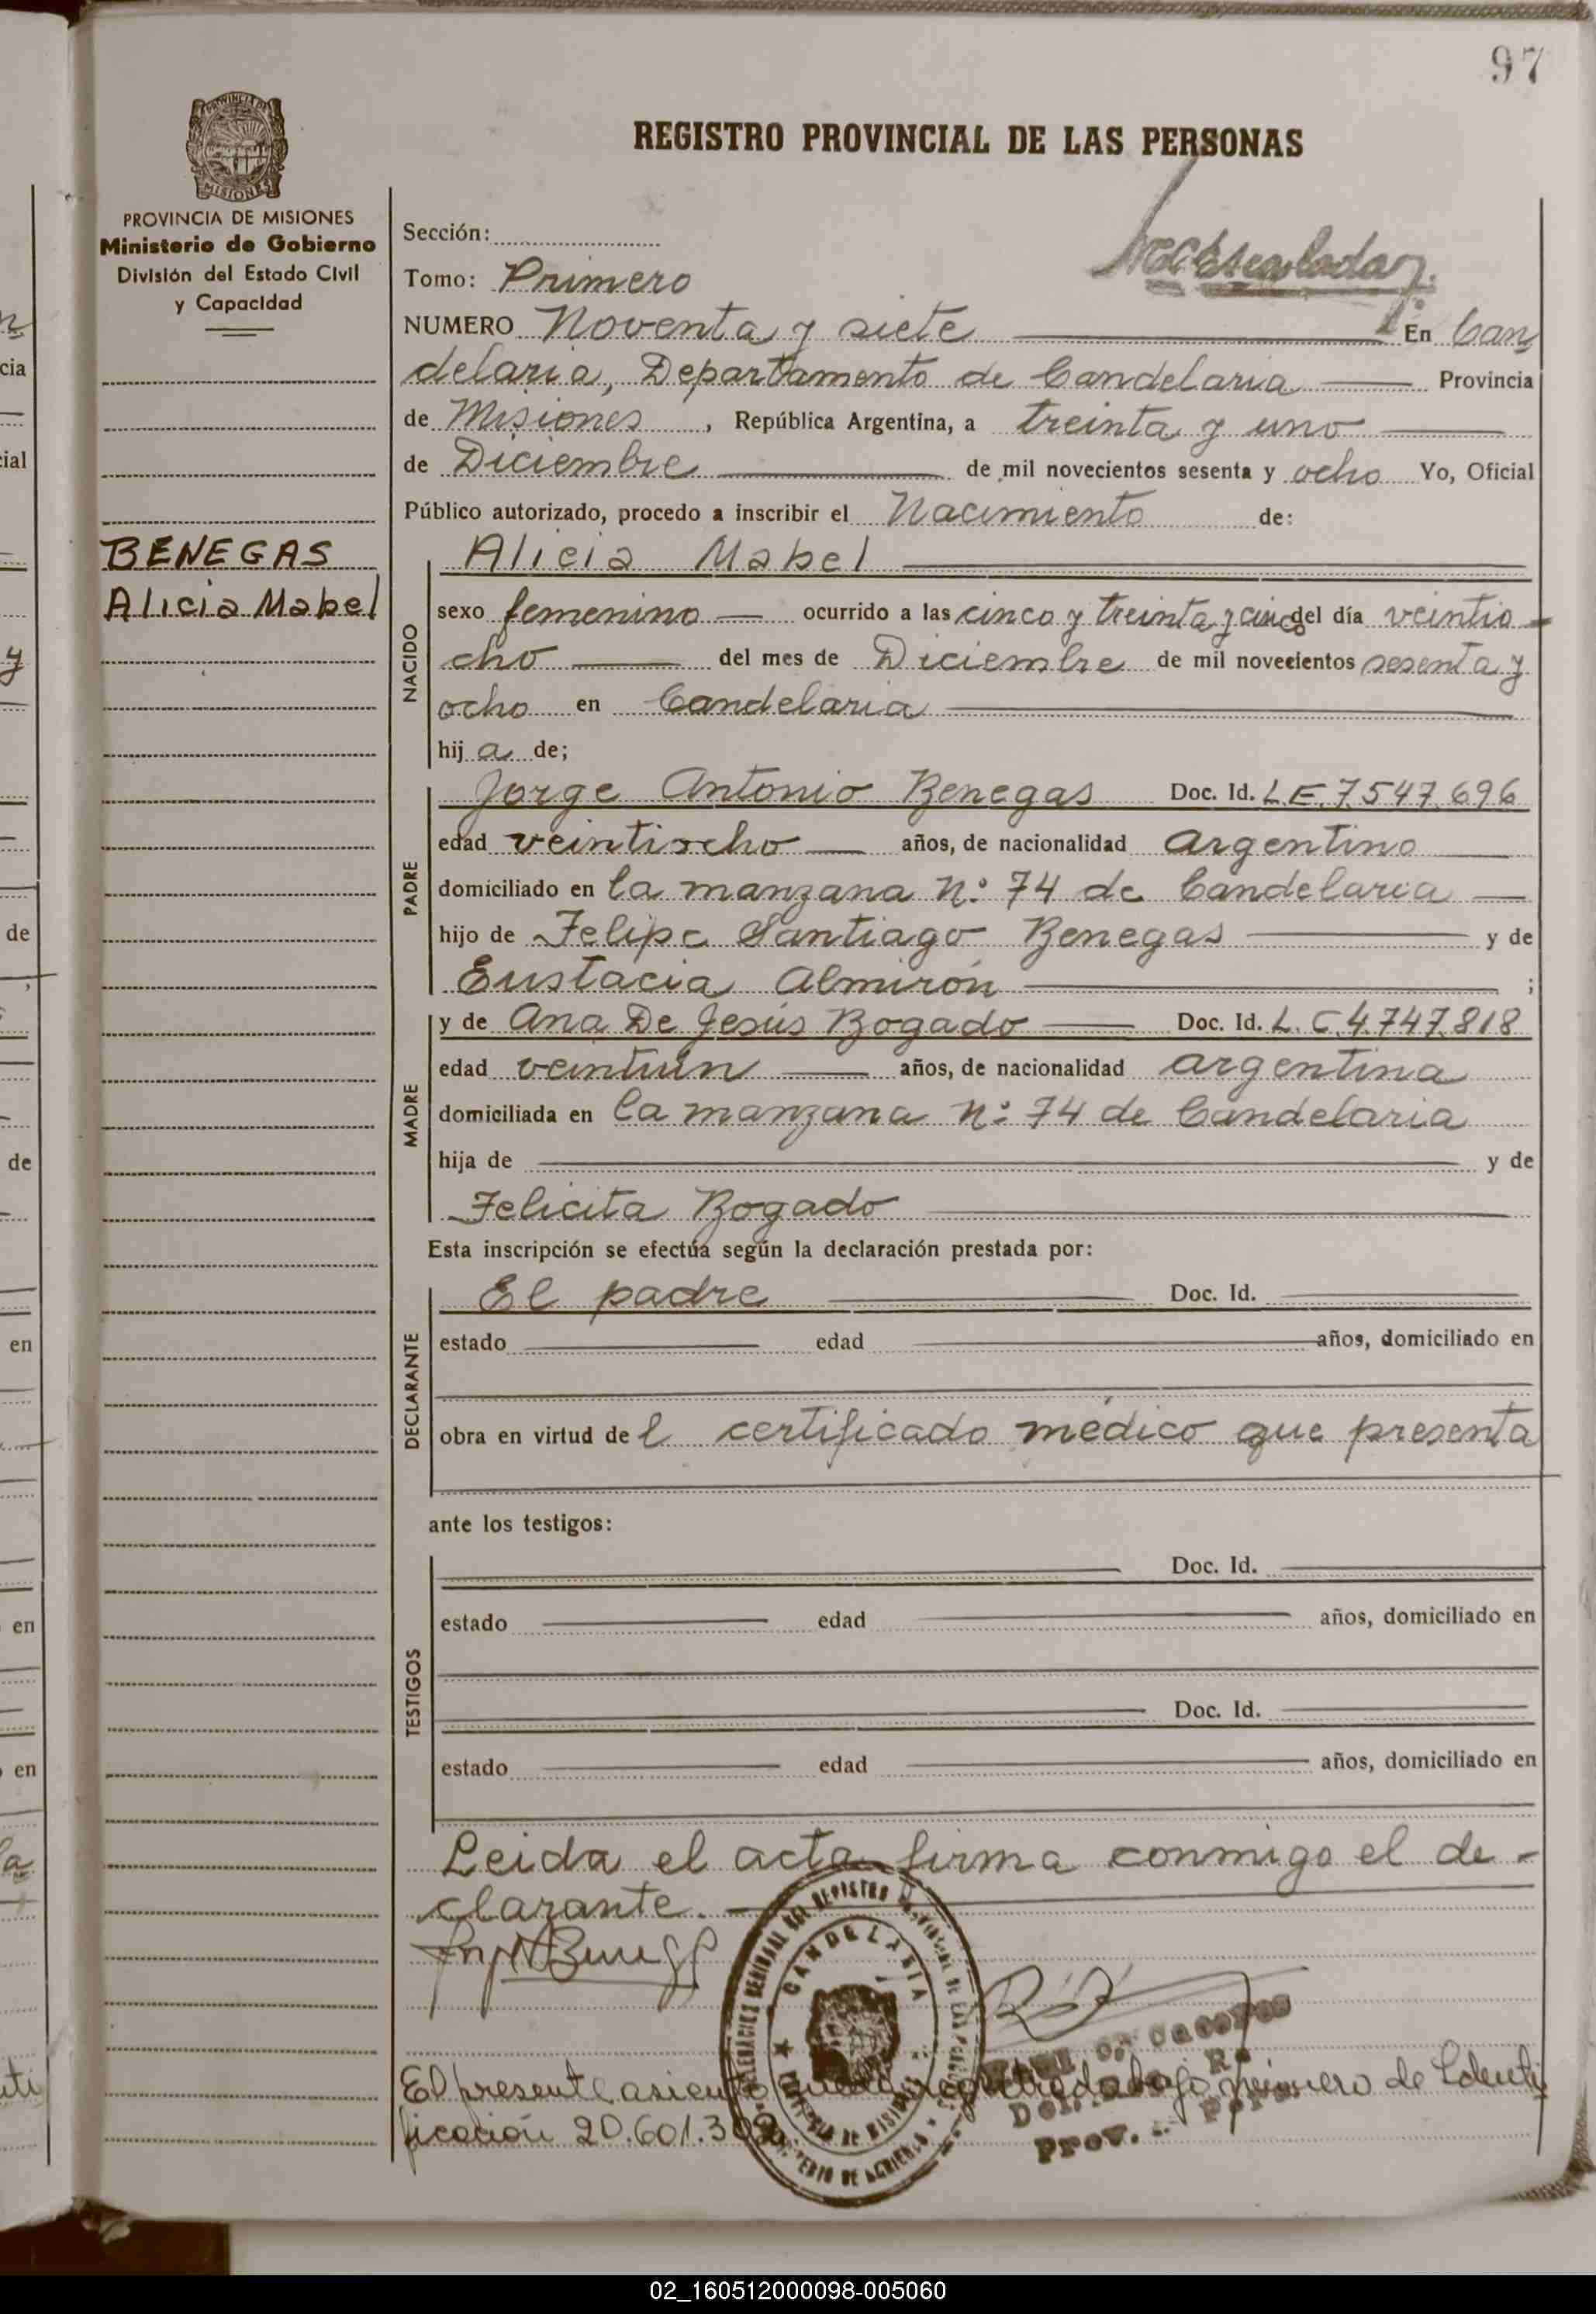 97
PROVINCIA DE
MISIONES
REGISTRO PROVINCIAL DE LAS PERSONAS
PROVINCIA DE MISIONES
Ministerio de Gobierno
División del Estado Civil
y Capacidad
BENEGAS
Alicia Mabel
Sección:
Tomo: Primero
NUMERO Noventa y siete En Can
delaria, Departamento de Candelaria Provincia
de Misiones, República Argentina, a treinta y uno
de Diciembre de mil novecientos sesenta y ocho Yo, Oficial
Público autorizado, procedo a inscribir el Nacimiento de:
NACIDO
Alicia Mabel
sexo femenino ocurrido a las cinco y treinta y cinco del día veintio-
cho del mes de Diciembre de mil novecientos sesenta y
ocho en Candelaria
hija de;
PADRE
Jorge Antonio Benegas Doc. Id. L.E. 7.547.696
edad veintiocho años, de nacionalidad argentino
domiciliado en la manzana Nº 74 de Candelaria
hijo de Felipe Santiago Benegas y de
Eustacia Almirón ;
MADRE
y de Ana De Jesús Bogado Doc. Id. L.C 4.747.818
edad veintiún años, de nacionalidad argentina
domiciliada en la manzana Nº 74 de Candelaria
hija de y de
Felicita Bogado
Esta inscripción se efectúa según la declaración prestada por:
DECLARANTE
El padre Doc. Id.
estado edad años, domiciliado en
obra en virtud del certificado médico que presenta
ante los testigos:
TESTIGOS
Doc. Id.
estado edad años, domiciliado en
Doc. Id.
estado edad años, domiciliado en
Leida el acta firma conmigo el de-
clarante.
CANDELARIA
El presente asiento registrado bajo número de Identi
ficación 20.601.3
Prov.
cia
cial
y
de
de
en
en
en
02_160512000098-005060